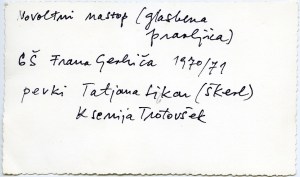 nastop (glasbena
pravljica)
GŠ Frana Gerbiča 1970/71
pevki Tatjana Likar (Škerl)
Ksenija Trotovšek